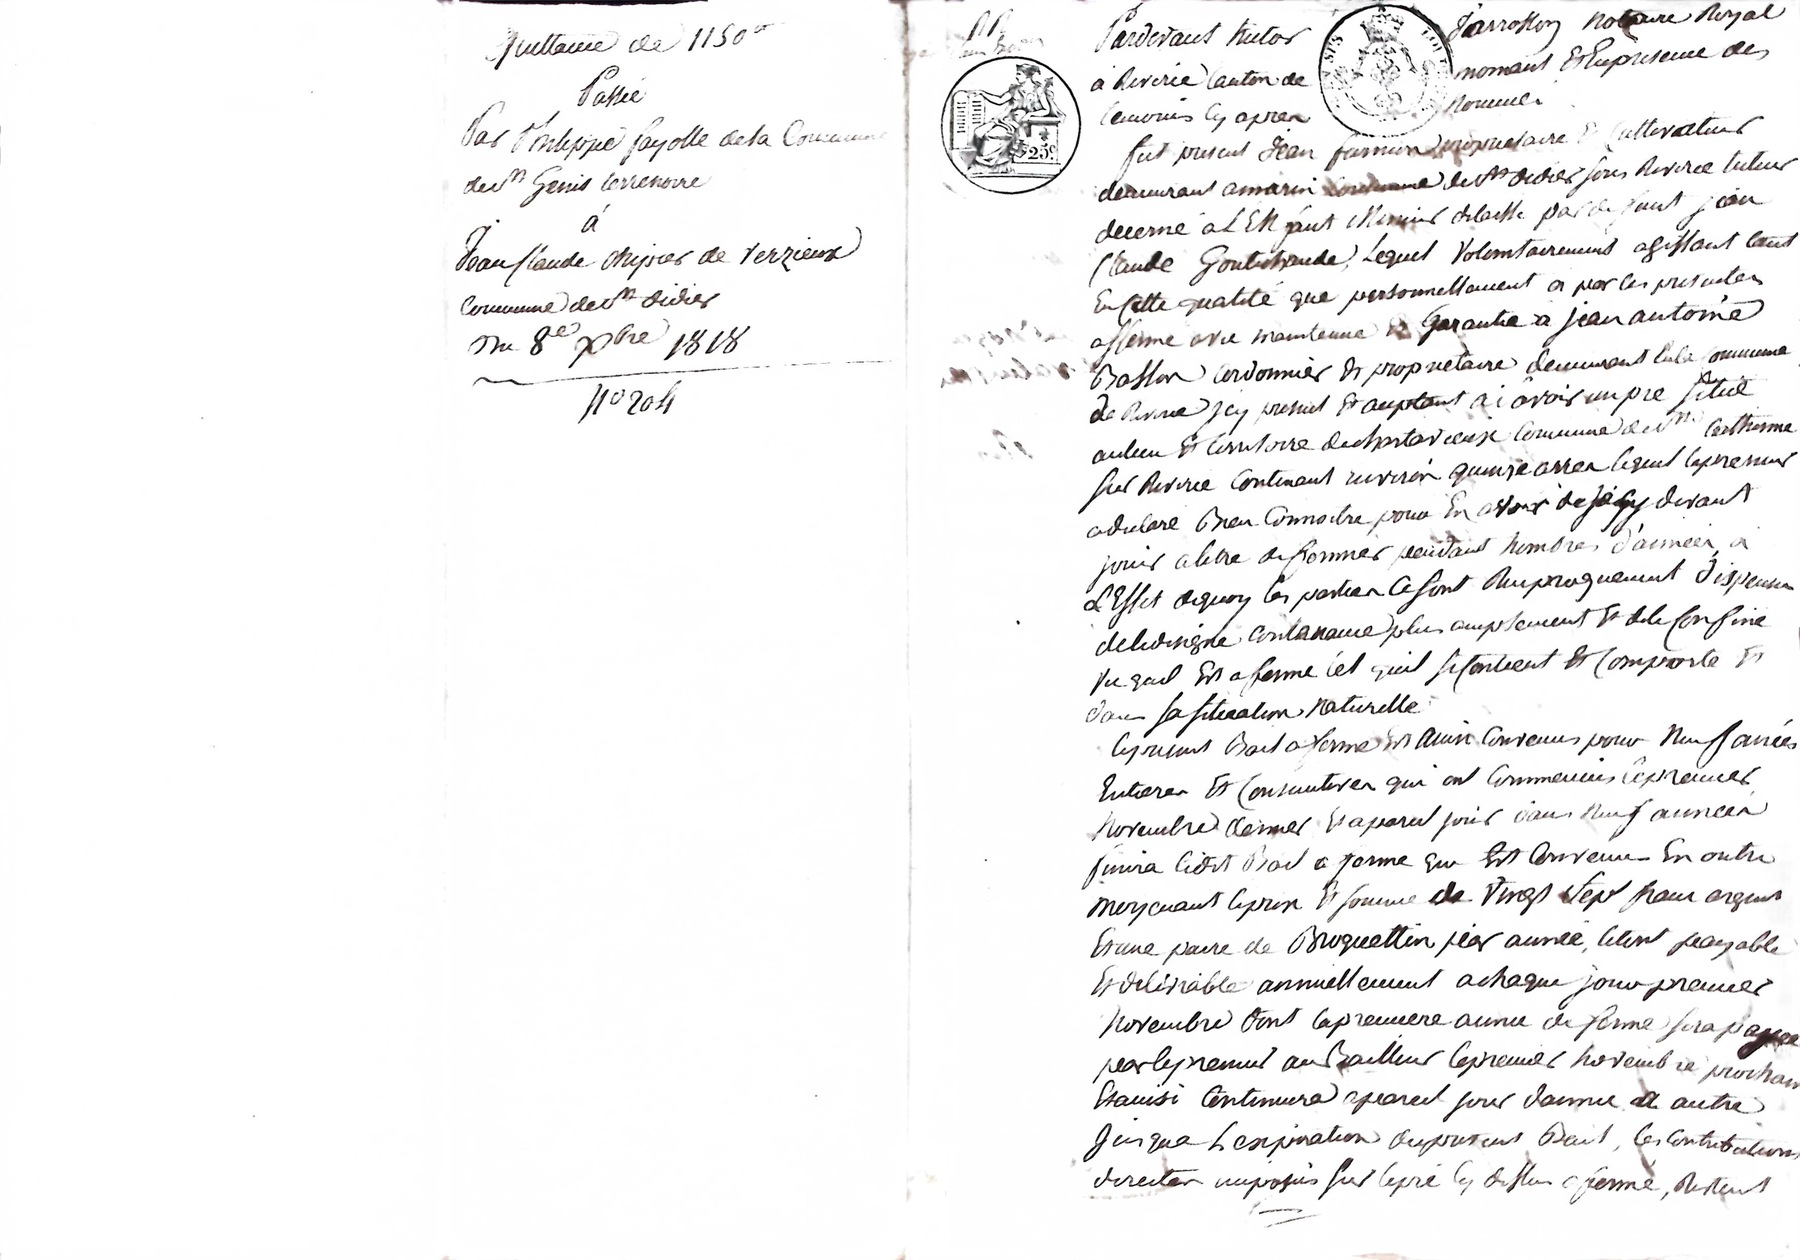 Quittance de 1150
Passée
Par Philippe fayolle de la Commune
de St Genis terrenoire
à
Jean Claude de verzieux
Commune de St didier
Du 8e xbre 1818
No 204
Pardevant Victor Jarrosson Notaire Royal
à Riverie Canton de mornant Et En presence des
temoins Cy apren Nommés
fut present Jean proprietaire Et Cultivateur
demeurant a marin Commune de St didier sous Riverie tuteur
decerné à L'Enfant Mineur delaissé par de funt jean
Claude Goutichaude, Lequel Volontairement agissant tant
En Cette qualité que personnellement a par les presentes
affermé avec maintenue Et Garantie à jean antoine
Basson Cordonnier Et proprietaire demeurant Commune
de Riverie Jcy present Et aceptant à Savoir un pre Situé
au lieu Et territoire de Commune de Ste Catherine
Sur Riverie Contenant environ quinze ares lequel le preneur
a declaré Bien Connoitre pour En avoir de devant
jouir a titre de fermier pendant Nombres d'année, a
L'Effet de quoy les parties Ce sont Reciproquement dispensé
de la designé Contenance plus amplement Et de la Confine
vu quil Est affermé tel quil se Contient Et Comporte Et
dans sa situation Naturelle
le present Bail a ferme Est Ainsi Convenus pour Neuf années
Entieres Et Consecutives qui ont Commencés le premier
Novembre dernier Et a pareil jour dans Neuf années
finira le dit Bail a ferme qui Est Convenu En outre
Moyenant le prix Et Somme de Vingt Sept franc argent
Et une paire de par année, le tout payable
Et delivrable annuellement a chaque jour premier
Novembre dont la premiere année de ferme sera payée
par le preneur au Bailleur le premier Novembre prochain
Et ainsi Continuera a pareil jour d'année a autre
Jusqua L'expiration du present Bail, les Contributions
directes imposés Sur le pré Cy dessus affermé, Restent